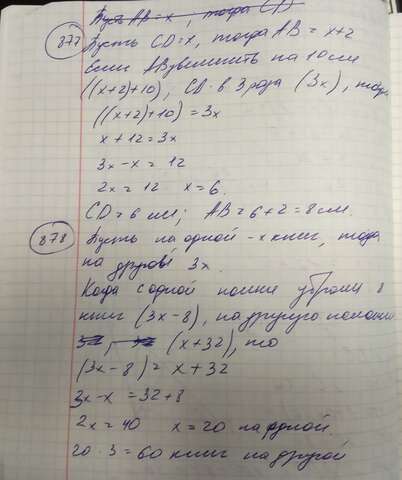 Пусть AB = x, тогда CD
877
Пусть CD = x, тогда AB = x+2
Если AB увеличить на 10 см
((x+2)+10), CD в 3 раза (3x), тогда
((x+2)+10) = 3x
x+12 = 3x
3x-x = 12
2x = 12 x = 6.
CD = 6 см; AB = 6+2 = 8 см.
878
Пусть на одной - x книг, тогда
на другой 3x.
Когда с одной полки убрали 8
книг (3x-8), на другую
(x+32), то
(3x-8) = x+32
3x-x = 32+8
2x = 40 x = 20 на одной.
20·3 = 60 книг на другой